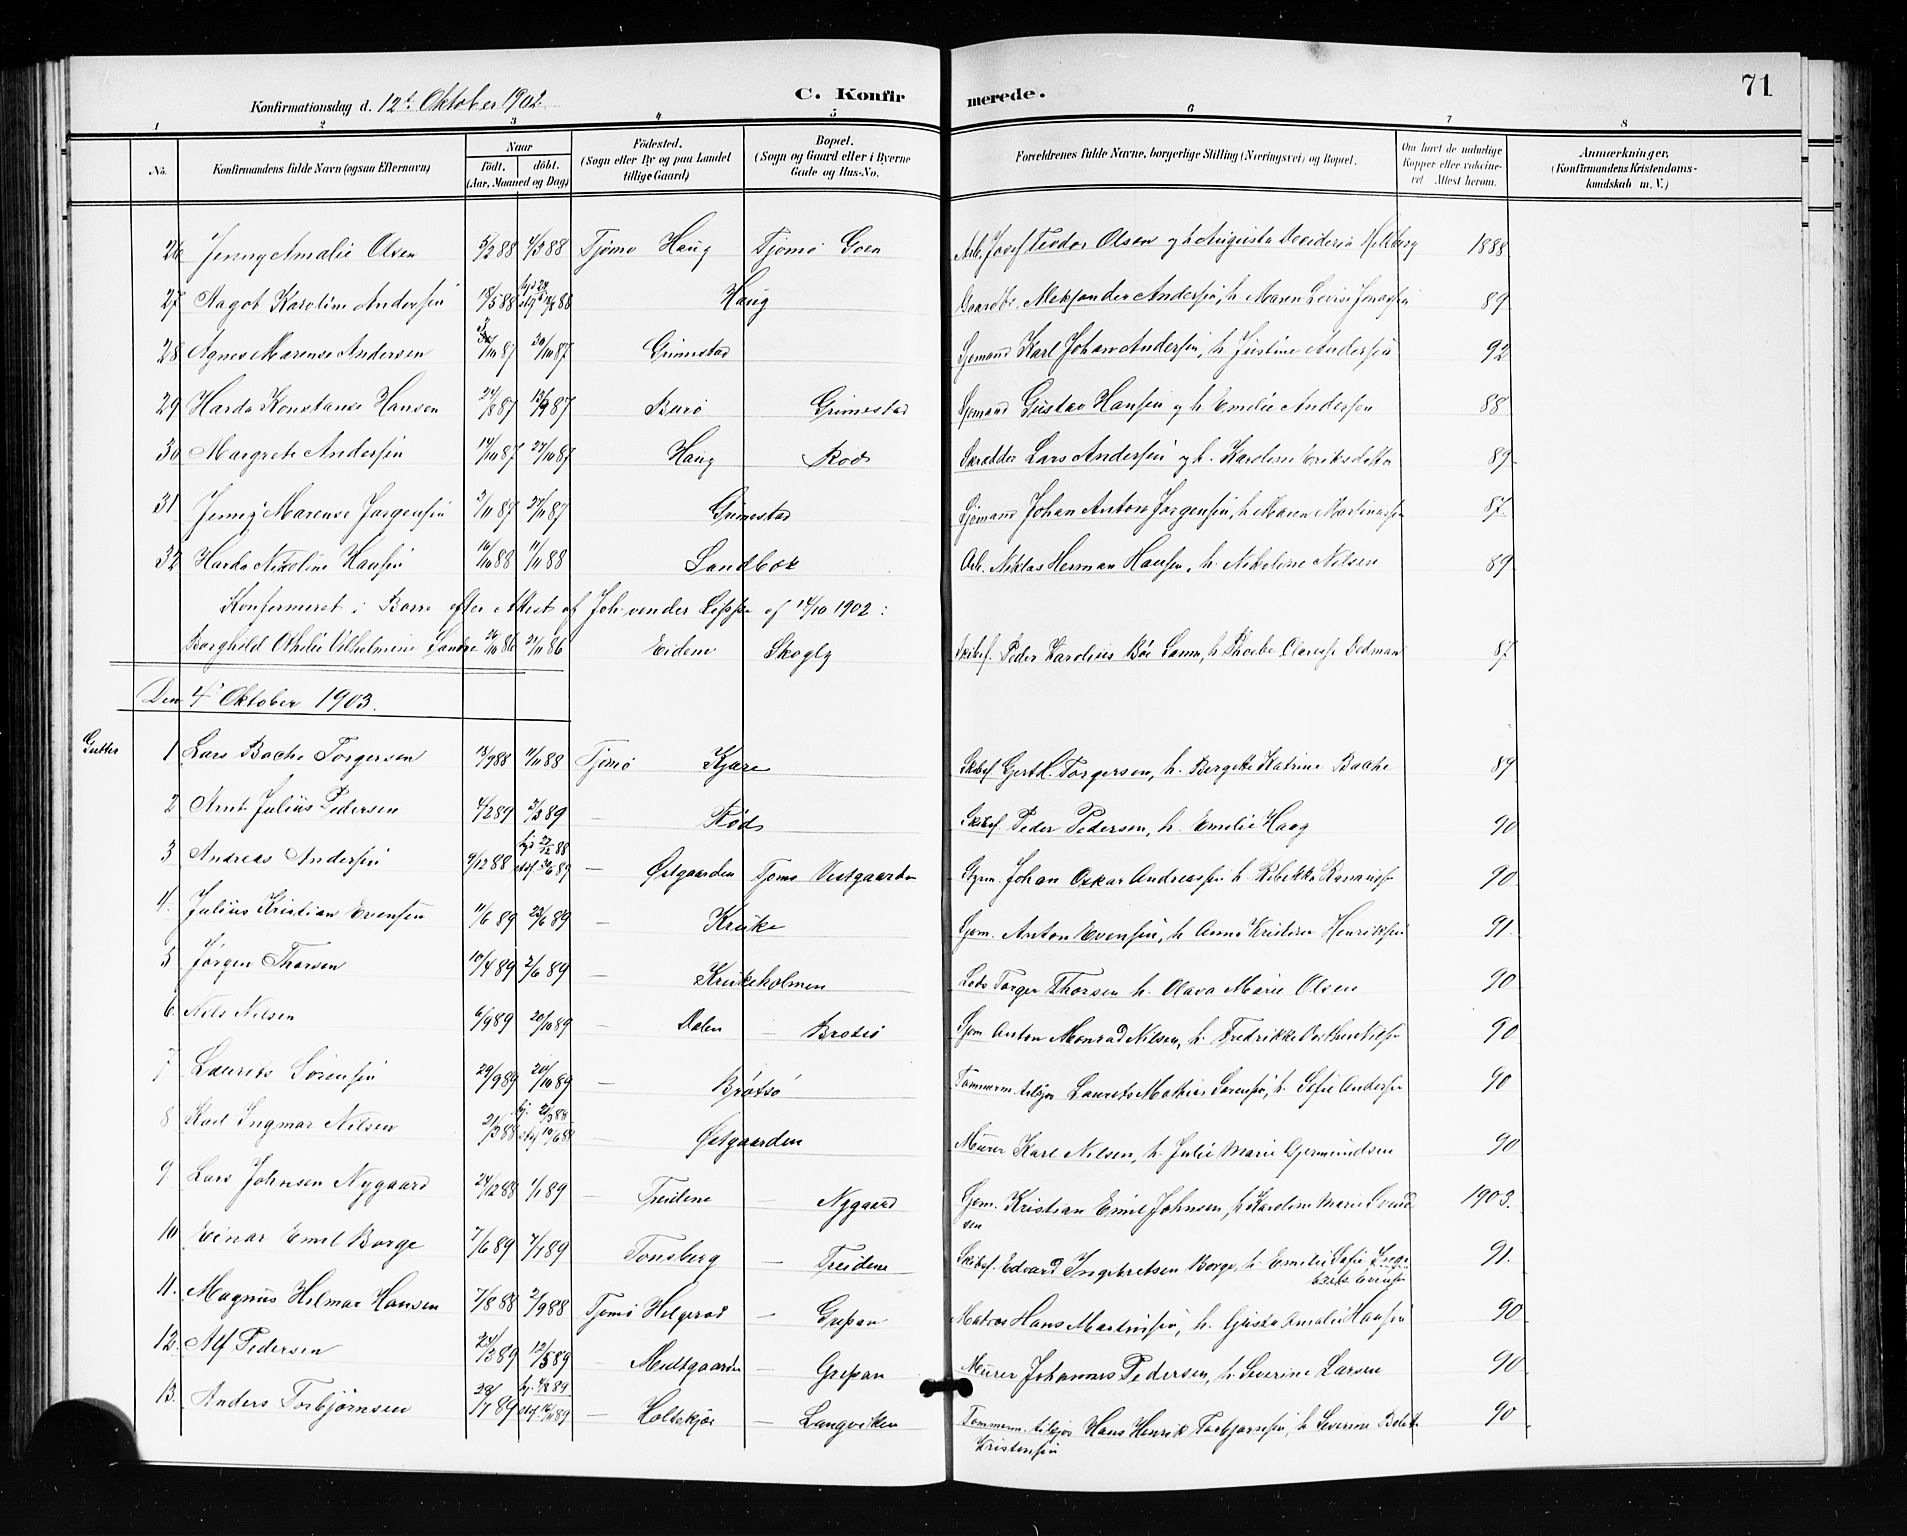 71
Konfirmationsdag d. 12t Oktober 1902 C. Konfirmerede.
1 2 3 4 5 6 7 8
No. Konfirmandens fulde Navn (ogsaa Efternavn) Naar födt. döbt. (Aar, Maaned og Dag) Födested. (Sogn eller By og paa Landet tillige Gaard) Bopæl. (Sogn og Gaard eller i Byerne Gade og Hus-No. Forældrenes fulde Navne, borgerlige Stilling (Næringsvei) og Bopæl. Om havt de naturlige Kopper eller vakcineret. Attest herom. Anmærkninger, (Konfirmandens Kristendomskundskab m. V.)
26 Jenny Amalie Olsen 5/2 88 4/3 88 Tjømø Haug Tjømø Goen Arb. Josef Teodor Olsen og h. Augusta Desideria Hellberg 1888
27 Aagot Karoline Andersen 18/5 88 Haug Gaardbr. Aleksander Andersen, h. Maren Lovise Jonassen 89
28 Agnes Marense Andersen /10 87 30/10 87 Grimestad Sjømand Karl Johan Andersen, h. Justine Andersen 92
29 Harda Konstanse Hansen 24/8 87 13/9 87 Burø Grimestad Sjømand Gustav Hansen og h. Emilie Andersen 88
30 Margrete Andersen 14/10 87 27/10 87 Haug Rød Skrædder Lars Andersen og h. Karoline Eriksdatter 89
31 Jenny Marense Jørgensen 2/11 87 27/11 87 Grimestad Sjømand Johan Anton Jørgensen, h. Maren Martinessen 87.
32 Harda Nikoline Hansen 16/10 88 11/11 88 Sandbæk Arb. Niklas Herman Hansen, h. Nikoline Nilsen 89
Konfirmeret i Borre efter Attest af Joh. von der Lippe af 14/10 1902:
Borghild Othelie Vilhelmine 26/10 86 21/11 86 Eidene Skogly Skibsf. Peder Karolius Bøe h. Phoebe Clarisse Dedman 87
Den 4' Oktober 1903.
Gutter 1 Lars Bache Torgersen 13/9 88 11/11 88 Tjømø Kjære Skibsf. Gerth. Torgersen, h. Bergitte Katrine Bache 89
2 Arnt Julius Pedersen 4/2 89 3/3 89 — Rød Skibsf. Peder Pedersen, h. Emilie Haug 90
3 Andreas Andersen 9/12 88 hjd 27/12 88 stf 30/6 89 — Østgaarden Tjømø Vestgaarden Sjøm. Johan Oskar Andreassen h. Rebekka 90
4. Julius Kristian Evensen 11/6 89 23/6 89 — Kruke Sjøm. Anton Evensen, h. Anna Kristine Henriksen 91.
5 Jørgen Thorsen 10/4 89 2/6 89 — Krukeholmen Lods Torger Thorsen h. Olava Marie Olsen 90
6. Nils Nilsen 6/9 89 20/10 89 — Dalen — Brøtsø Sjøm Anton Monrad Nilsen, h. Fredrikke 90
7 Laurits Sørensen 29/9 89 20/10 89 — Brøtsø Tømmerm. tilsjøs Laurits Mathias Sørensen, h. Sofie Andersen 90
8 Karl Ingmar Nilsen 2/3 88 hj. 2/3 88 stf 10/6 88 — Østgaarden Murer Karl Nilsen, h. Julie Marie Gjermundsen 90
9 Lars Johnsen Nygaard 24/12 88 1/1 89 — Treidene — Nygaard Sjøm. Kristian Emil Johnsen, h. Karoline Marie Svend
sen 1903.
10 Einar Emil Borge 7/6 89 7/7 89 Tønsberg — Treidene Skibsf. Edvard Ingebretsen Borge, h. Emilie Sofie Inge
brets Evensen 91.
11. Magnus Hilmar Hansen 7/8 88 2/9 88 Tjømø Helgerød — Grepan Matros Hans Martinsen, h. Gusta Amalie Hansen 90
12. Alf Pedersen 24/3 89 12/5 89 — Midtgaarden — Grepan Murer Johannes Pedersen, h. Severine Larsen 90
13. Anders Torbjørnsen 28/7 89 — Holtekjær — Langviken Tømmerm. tilsjøs Hans Henrik Torbjørnsen, h. Severine
Kristensen 90